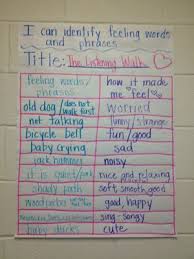 I can identify feeling words
and phrases
Title: The Listening Walk
feeling words/ how it made
phrases me feel
old dog / does not walk fast worried
not talking funny / strange
bicycle bell fun / good
baby crying sad
jack hammer noisy
it is quiet nice and relaxing
shady path soft, smooth, good
woodpecker good, happy
sing-songy
baby ducks cute